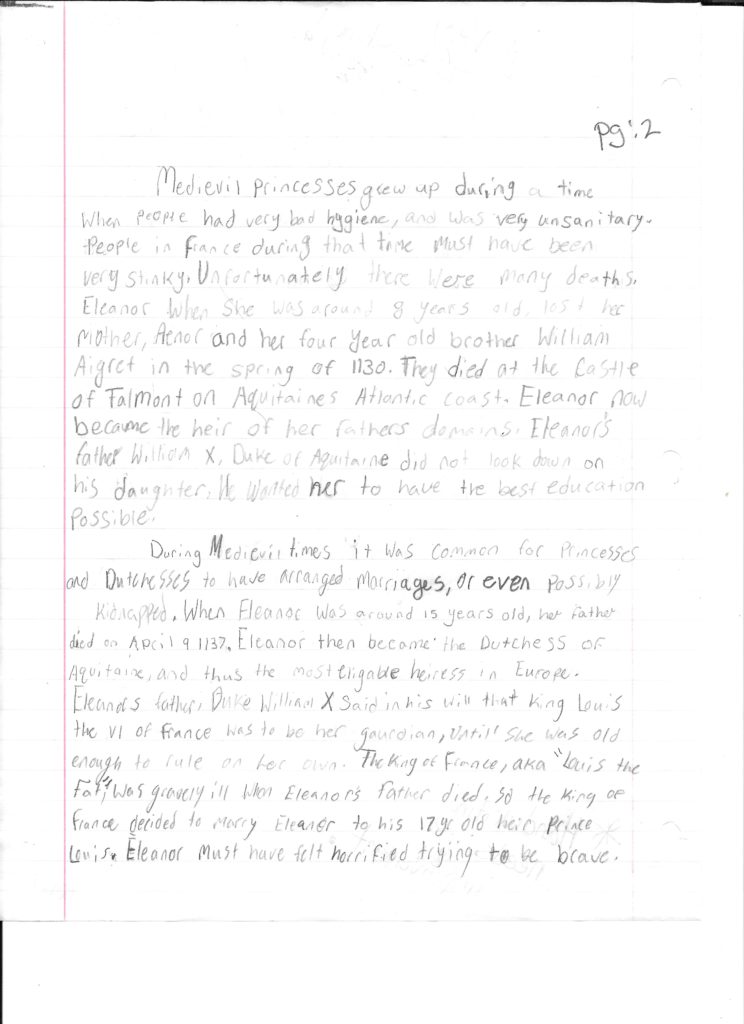 pg:2
Medievil princesses grew up during a time
when people had very bad hygiene, and was very unsanitary.
People in france during that time must have been
very stinky. Unfortunately there were many deaths.
Eleanor when she was around 8 years old, lost her
mother, Aenor and her four year old brother William
Aigret in the spring of 1130. They died at the Castle
of Talmont on Aquitaines Atlantic coast. Eleanor now
became the heir of her fathers domains. Eleanor's
father William X, Duke of Aquitaine did not look down on
his daughter. He wanted her to have the best education
possible.
During Medievil times it was common for princesses
and Dutchesses to have arranged marriages, or even possibly
kidnapped. When Eleanor was around 15 years old, her father
died on April 9 1137. Eleanor then became the Dutchess of
Aquitaine, and thus the most eligable heiress in Europe.
Eleanors father, Duke William X said in his will that king Louis
the VI of france was to be her gaurdian, until she was old
enough to rule on her own. The king of France, aka "Louis the
Fat", was gravely ill when Eleanor's father died. So the king of
france decided to marry Eleanor to his 17 yr old heir prince
Louis. Eleanor must have felt horrified trying to be brave.